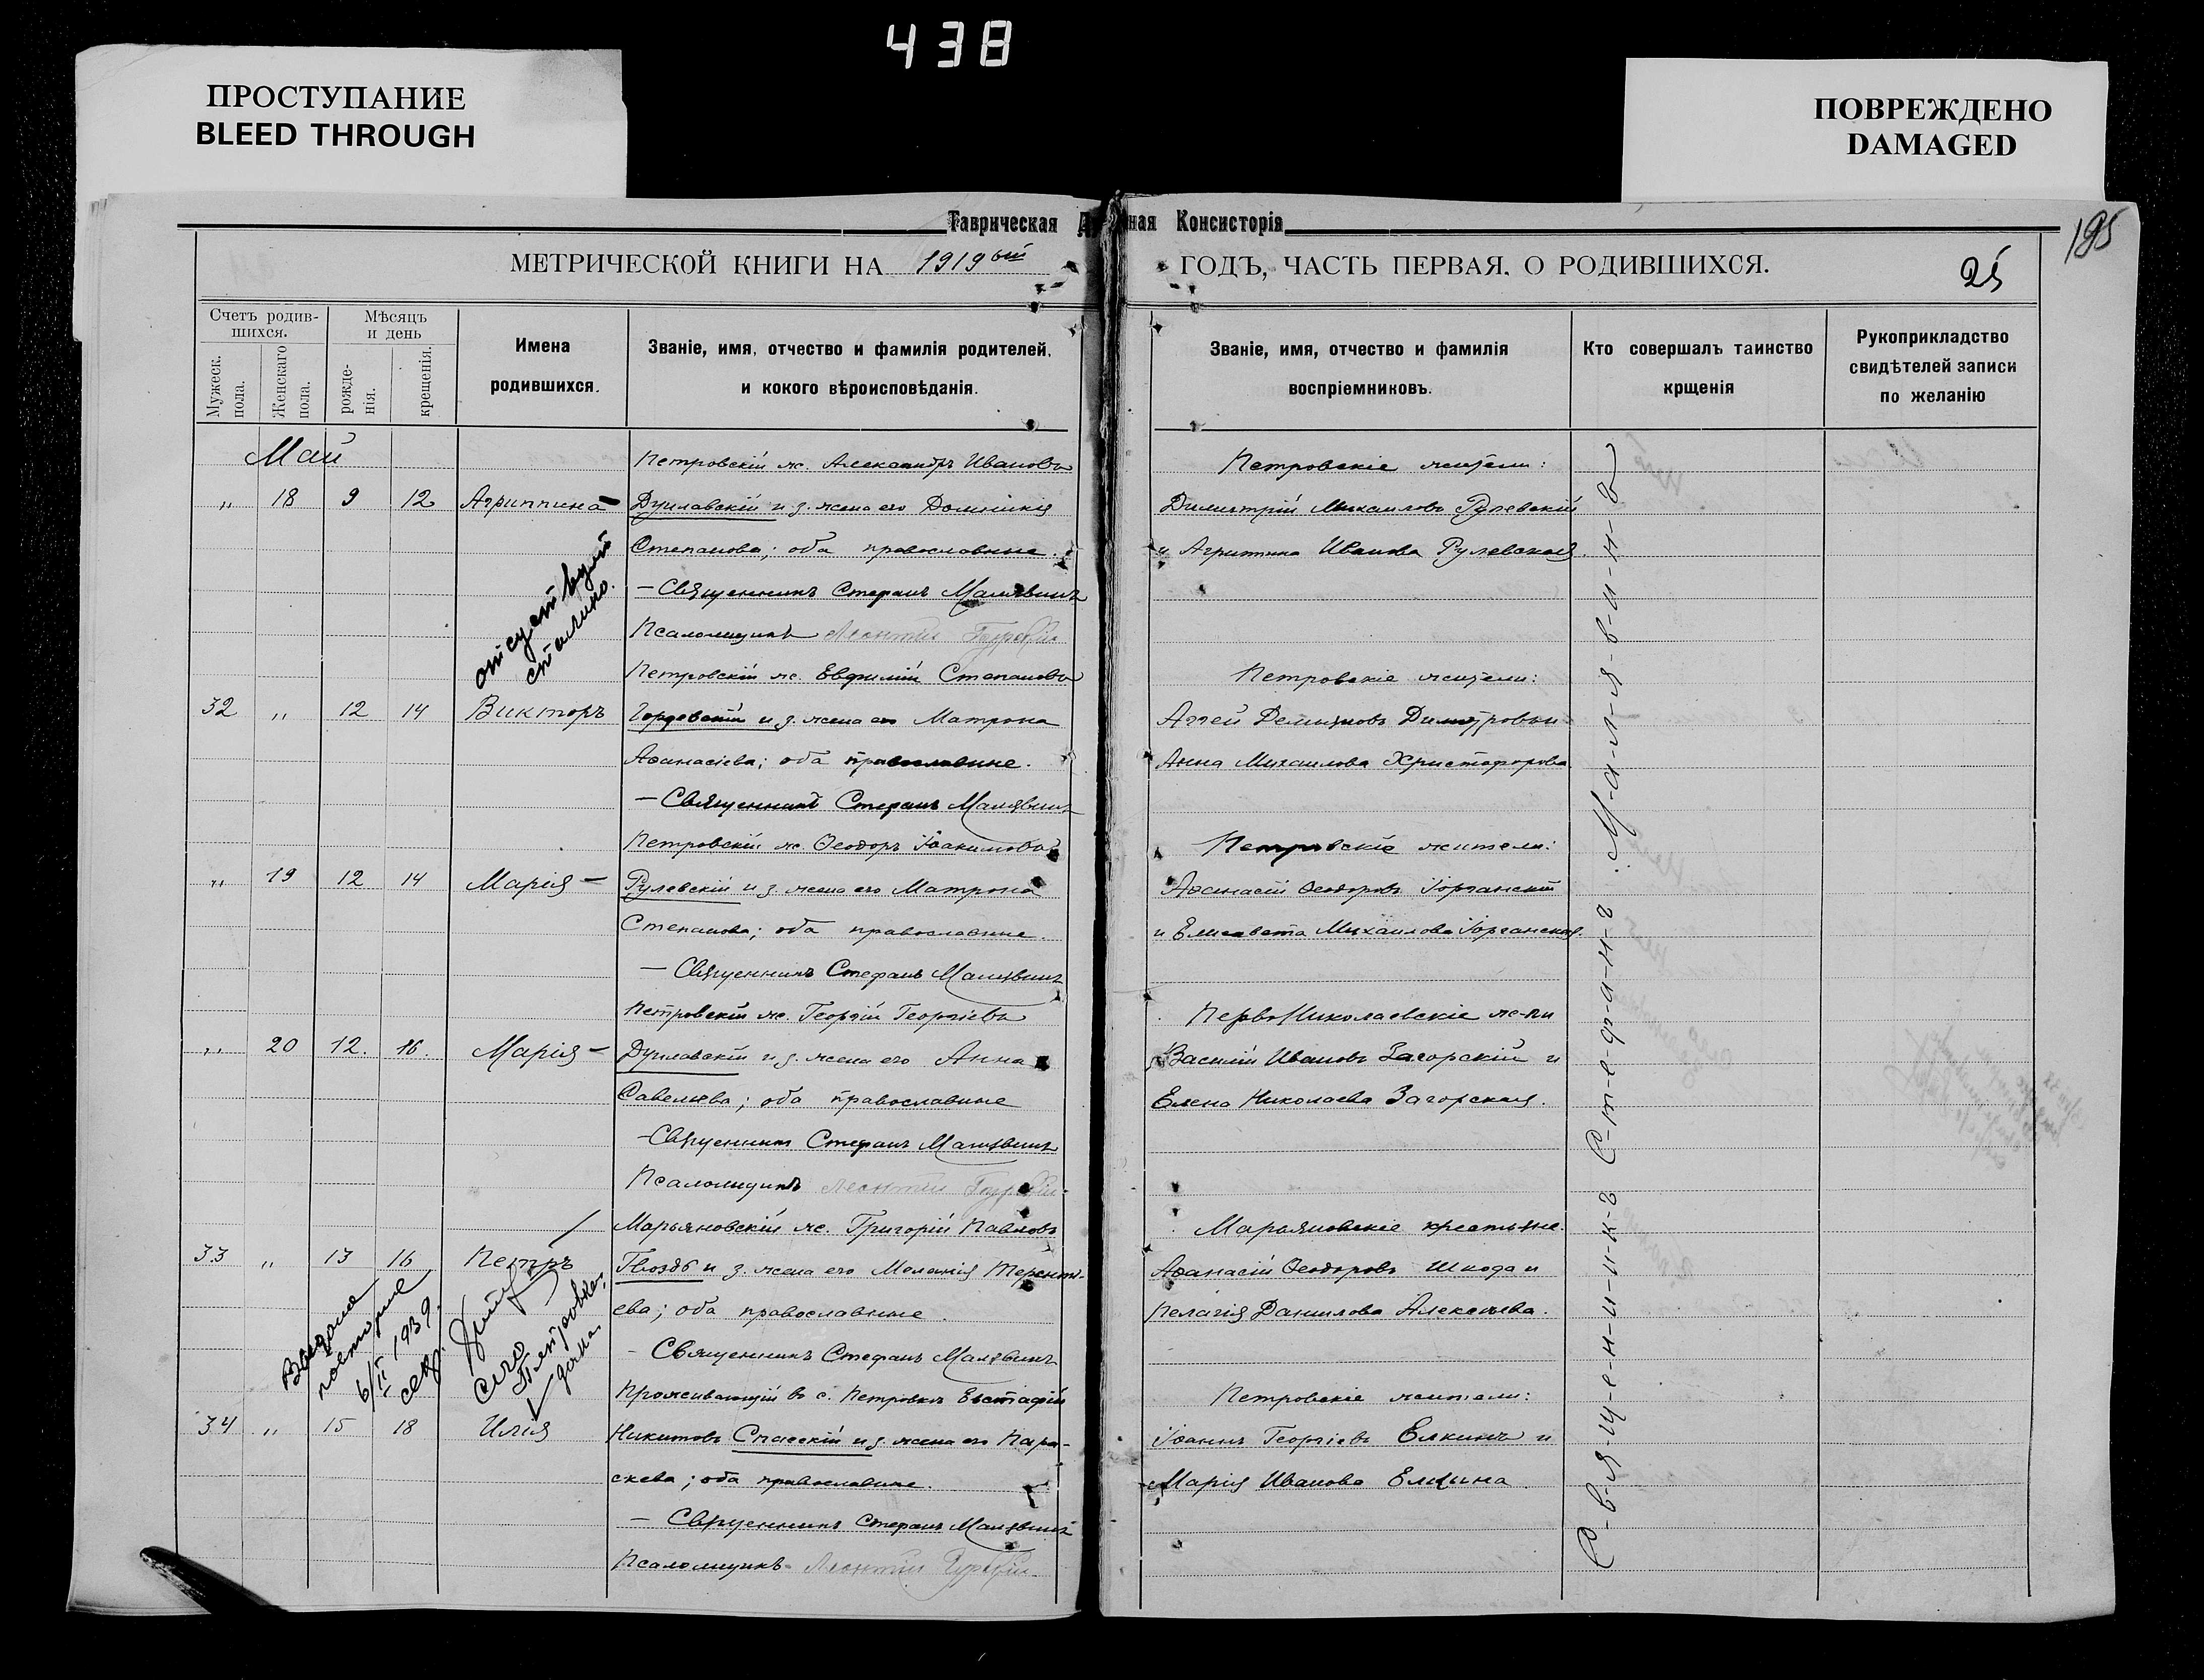 438
ПРОСТУПАНИЕ
BLEED THROUGH
ПОВРЕЖДЕНО
DAMAGED
Таврическая Д ная Консисторія
195
МЕТРИЧЕСКОЙ КНИГИ НА 1919ый ГОДЪ, ЧАСТЬ ПЕРВАЯ, О РОДИВШИХСЯ.
25
Счетъ родив-
шихся.
Мужеск.
пола.
Женскаго
пола.
Мѣсяцъ
и день
рожде-
нія.
крещенія.
Имена
родившихся.
Званіе, имя, отчество и фамилія родителей,
и кокого вѣроисповѣданія.
Званіе, имя, отчество и фамилія
воспріемниковъ.
Кто совершалъ таинство
крщенія
Рукоприкладство
свидѣтелей записи
по желанію
Май
Петровскій ж. Александръ Ивановъ
Петровскіе жители:
„ 18 9 12 Агриппина
и з. жена его Домникія
Димитрій Михаиловъ Рулевскій
Степанова; оба православные.
и Агриппина Иванова Рулевская.
— Священникъ Стефанъ Малявинъ
Псаломщикъ Леонтій
Петровскій ж. Евфимій Степановъ
Петровскіе жители:
32 „ 12 14 Викторъ
и з. жена его Матрона
Аггей Демидовъ
Аѳанасіева; оба православные.
Анна Михаилова Христофорова
— Священникъ Стефанъ Малявинъ
Петровскій ж. Ѳеодоръ Іоакимовъ
Петровскіе жители:
„ 19 12 14 Марія —
Рулевскій и з. жена его Матрона
Аѳанасій Ѳеодоровъ Іорганскій
Степанова; оба православные.
и Елисавета Михаилова Іорганская.
— Священникъ Стефанъ Малявинъ
Петровскій ж. Георгій Георгіевъ
Перво Николаевскіе ж-ли
„ 20 12. 16. Марія —
и з. жена его Анна
Василій Ивановъ Загорскій и
Савельева; оба православные
Елена Николаева Загорская.
— Священникъ Стефанъ Малявинъ
Псаломщикъ Леонтій
Марьяновскій ж. Григорій Павловъ
Марьяновскіе крестьяне.
33 „ 13 16 Петръ
Гвоздь и з. жена его Меланія Терент-
Аѳанасій Ѳеодоровъ Шкода и
ева; оба православные.
Пелагія Даниилова Алексѣева.
— Священникъ Стефанъ Малявинъ
6/II 1939.
Проживающій въ с. Петровкѣ Евстафій
Петровскіе жители:
34 „ 15 18 Илія
Никитовъ Спасскій и з. жена его Пара-
Іоаннъ Георгіевъ Елкинъ и
скева; оба православные.
Марія Иванова Елкина.
— Священникъ Стефанъ Малявинъ
Псаломщикъ Леонтій
С-в-я-щ-е-н-н-и-к-ъ С-т-е-ф-а-н-ъ М-а-л-я-в-и-н-ъ